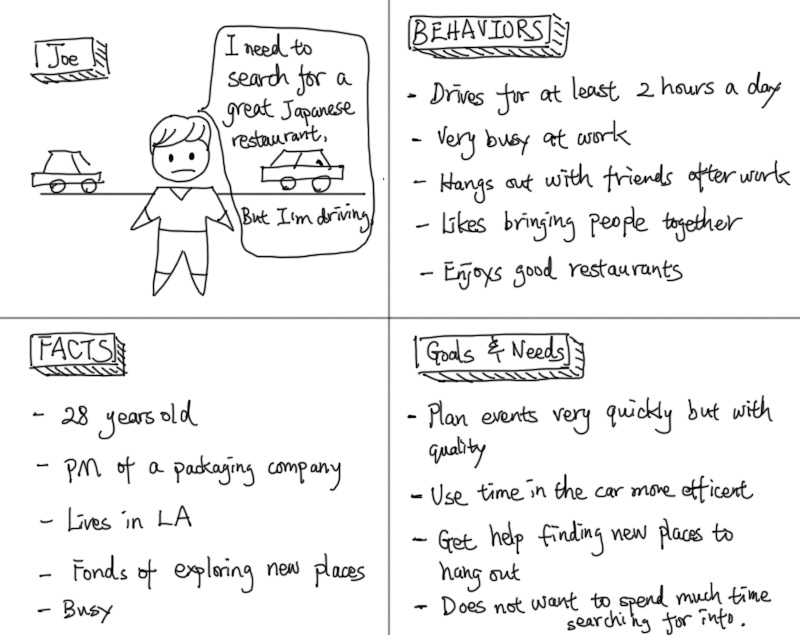 Joe
I need to
search for a
great Japanese
restaurant,
But I'm driving
BEHAVIORS
- Drives for at least 2 hours a day
- Very busy at work
- Hangs out with friends after work
- Likes bringing people together
- Enjoys good restaurants
FACTS
- 28 years old
- PM of a packaging company
- Lives in LA
- Fonds of exploring new places
- Busy
Goals & Needs
- Plan events very quickly but with
quality
- Use time in the car more efficent
- Get help finding new places to
hang out
- Does not want to spend much time
searching for info.